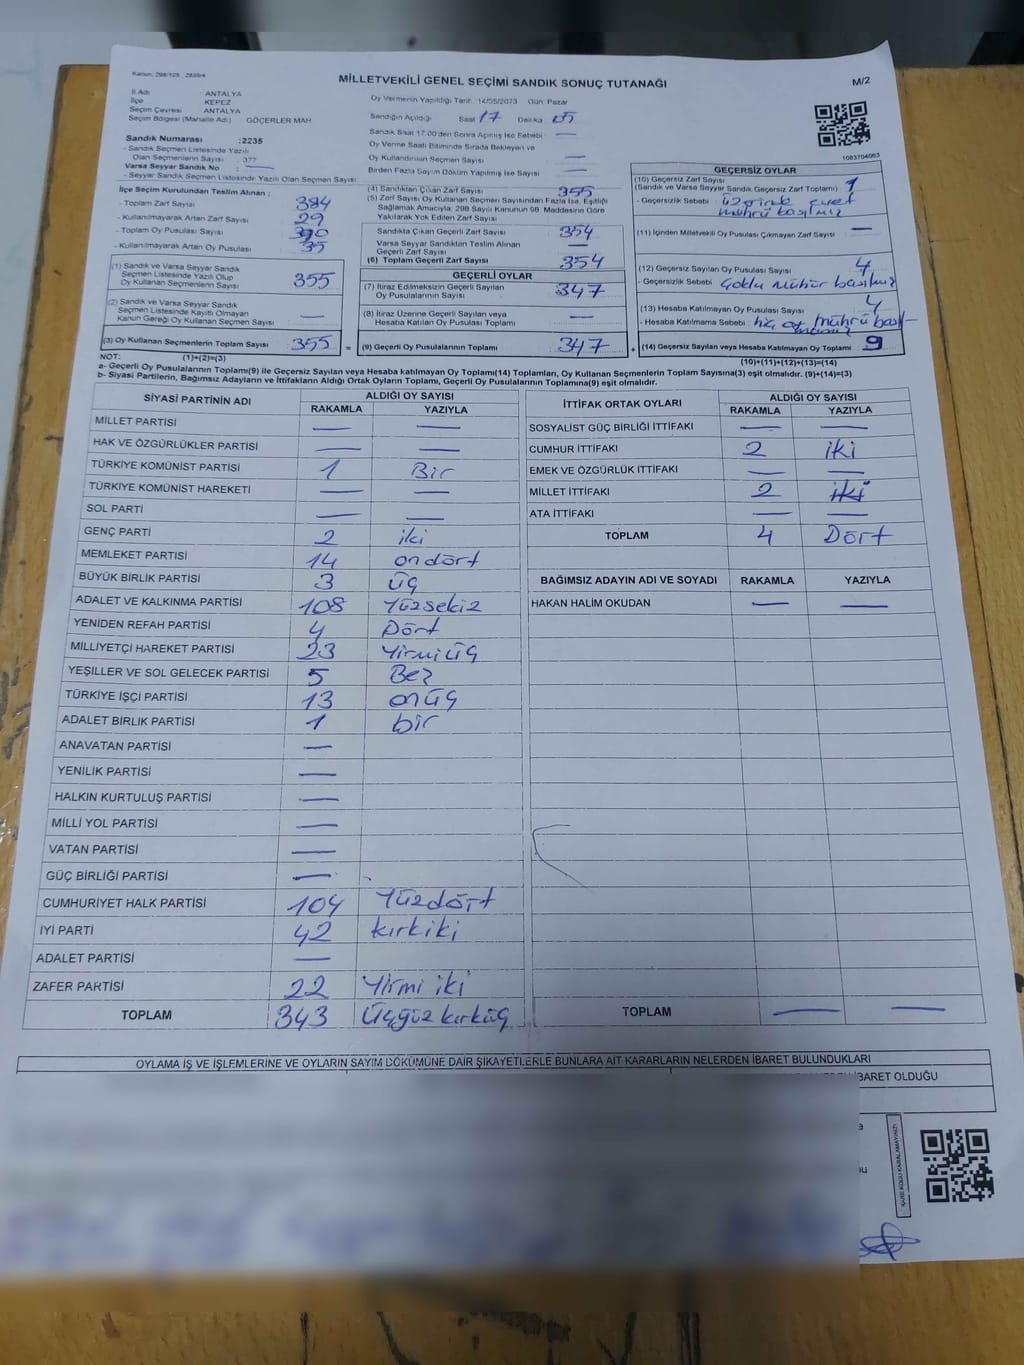 Kanun: 298/105 , 2839/4
MİLLETVEKİLİ GENEL SEÇİMİ SANDIK SONUÇ TUTANAĞI
M/2
İl Adı : ANTALYA
İlçe : KEPEZ
Seçim Çevresi : ANTALYA
Seçim Bölgesi (Mahalle Adı) : GÖÇERLER MAH
Sandık Numarası :2235
- Sandık Seçmen Listesinde Yazılı
Olan Seçmenlerin Sayısı : 377
Varsa Seyyar Sandık No : —
- Seyyar Sandık Seçmen Listesinde Yazılı Olan Seçmen Sayısı:
İlçe Seçim Kurulundan Teslim Alınan :
- Toplam Zarf Sayısı 384
- Kullanılmayarak Artan Zarf Sayısı 29
- Toplam Oy Pusulası Sayısı 390
- Kullanılmayarak Artan Oy Pusulası 35
(1) Sandık ve Varsa Seyyar Sandık
Seçmen Listesinde Yazılı Olup
Oy Kullanan Seçmenlerin Sayısı 355
(2) Sandık ve Varsa Seyyar Sandık
Seçmen Listesinde Kayıtlı Olmayan
Kanun Gereği Oy Kullanan Seçmen Sayısı —
(3) Oy Kullanan Seçmenlerin Toplam Sayısı 355 =
Oy Vermenin Yapıldığı Tarih: 14/05/2023 Gün: Pazar
Sandığın Açıldığı Saat 17 Dakika 05
Sandık Saat 17:00'den Sonra Açılmış İse Sebebi : —
Oy Verme Saati Bitiminde Sırada Bekleyen ve
Oy Kullandırılan Seçmen Sayısı : —
Birden Fazla Sayım Döküm Yapılmış İse Sayısı : —
(4) Sandıktan Çıkan Zarf Sayısı 355
(5) Zarf Sayısı Oy Kullanan Seçmen Sayısından Fazla İse, Eşitliği
Sağlamak Amacıyla; 298 Sayılı Kanunun 98. Maddesinin Göre
Yakılarak Yok Edilen Zarf Sayısı
Sandıkta Çıkan Geçerli Zarf Sayısı 354
Varsa Seyyar Sandıkten Teslim Alınan
Geçerli Zarf Sayısı —
(6) Toplam Geçerli Zarf Sayısı 354
GEÇERLİ OYLAR
(7) İtiraz Edilmeksizin Geçerli Sayılan
Oy Pusulalarının Sayısı 347
(8) İtiraz Üzerine Geçerli Sayılan veya
Hesaba Katılan Oy Pusulası Toplamı —
(9) Geçerli Oy Pusulalarının Toplamı 347 +
1083704063
GEÇERSİZ OYLAR
(10) Geçersiz Zarf Sayısı
(Sandık ve Varsa Seyyar Sandık Geçersiz Zarf Toplamı) 1
- Geçersizlik Sebebi : üzerine evet
mührü basılmış
(11) İçinden Milletvekili Oy Pusulası Çıkmayan Zarf Sayısı —
(12) Geçersiz Sayılan Oy Pusulası Sayısı 4
- Geçersizlik Sebebi : Çoklu Mühür basılmış
(13) Hesaba Katılmayan Oy Pusulası Sayısı 4
- Hesaba Katılmama Sebebi : hiç oy mührü bas-
(14) Geçersiz Sayılan veya Hesaba Katılmayan Oy Toplamı 9
(10)+(11)+(12)+(13)=(14)
NOT: (1)+(2)=(3)
a- Geçerli Oy Pusulalarının Toplamı(9) ile Geçersiz Sayılan veya Hesaba katılmayan Oy Toplamı(14) Toplamları, Oy Kullanan Seçmenlerin Toplam Sayısına(3) eşit olmalıdır. (9)+(14)=(3)
b- Siyasi Partilerin, Bağımsız Adayların ve İttifakların Aldığı Ortak Oyların Toplamı, Geçerli Oy Pusulalarının Toplamına(9) eşit olmalıdır.
SİYASİ PARTİNİN ADI ALDIĞI OY SAYISI
RAKAMLA YAZIYLA
MİLLET PARTİSİ — —
HAK VE ÖZGÜRLÜKLER PARTİSİ — —
TÜRKİYE KOMÜNİST PARTİSİ 1 Bir
TÜRKİYE KOMÜNİST HAREKETİ — —
SOL PARTİ — —
GENÇ PARTİ 2 iki
MEMLEKET PARTİSİ 14 ondört
BÜYÜK BİRLİK PARTİSİ 3 üç
ADALET VE KALKINMA PARTİSİ 108 Yüzsekiz
YENİDEN REFAH PARTİSİ 4 Dört
MİLLİYETÇİ HAREKET PARTİSİ 23 Yirmiüç
YEŞİLLER VE SOL GELECEK PARTİSİ 5 Beş
TÜRKİYE İŞÇİ PARTİSİ 13 onüç
ADALET BİRLİK PARTİSİ 1 bir
ANAVATAN PARTİSİ —
YENİLİK PARTİSİ —
HALKIN KURTULUŞ PARTİSİ —
MİLLİ YOL PARTİSİ —
VATAN PARTİSİ —
GÜÇ BİRLİĞİ PARTİSİ —
CUMHURİYET HALK PARTİSİ 104 Yüzdört
İYİ PARTİ 42 kırkiki
ADALET PARTİSİ —
ZAFER PARTİSİ 22 Yirmi iki
TOPLAM 343 Üçyüz kırküç
İTTİFAK ORTAK OYLARI ALDIĞI OY SAYISI
RAKAMLA YAZIYLA
SOSYALİST GÜÇ BİRLİĞİ İTTİFAKI — —
CUMHUR İTTİFAKI 2 iki
EMEK VE ÖZGÜRLÜK İTTİFAKI — —
MİLLET İTTİFAKI 2 iki
ATA İTTİFAKI — —
TOPLAM 4 Dört
BAĞIMSIZ ADAYIN ADI VE SOYADI RAKAMLA YAZIYLA
HAKAN HALİM OKUDAN — —
TOPLAM — —
OYLAMA İŞ VE İŞLEMLERİNE VE OYLARIN SAYIM DÖKÜMÜNE DAİR ŞİKAYETLERLE BUNLARA AİT KARARLARIN NELERDEN İBARET BULUNDUKLARI
İBARET OLDUĞU
KARE KODU KARALAMAYINIZ!